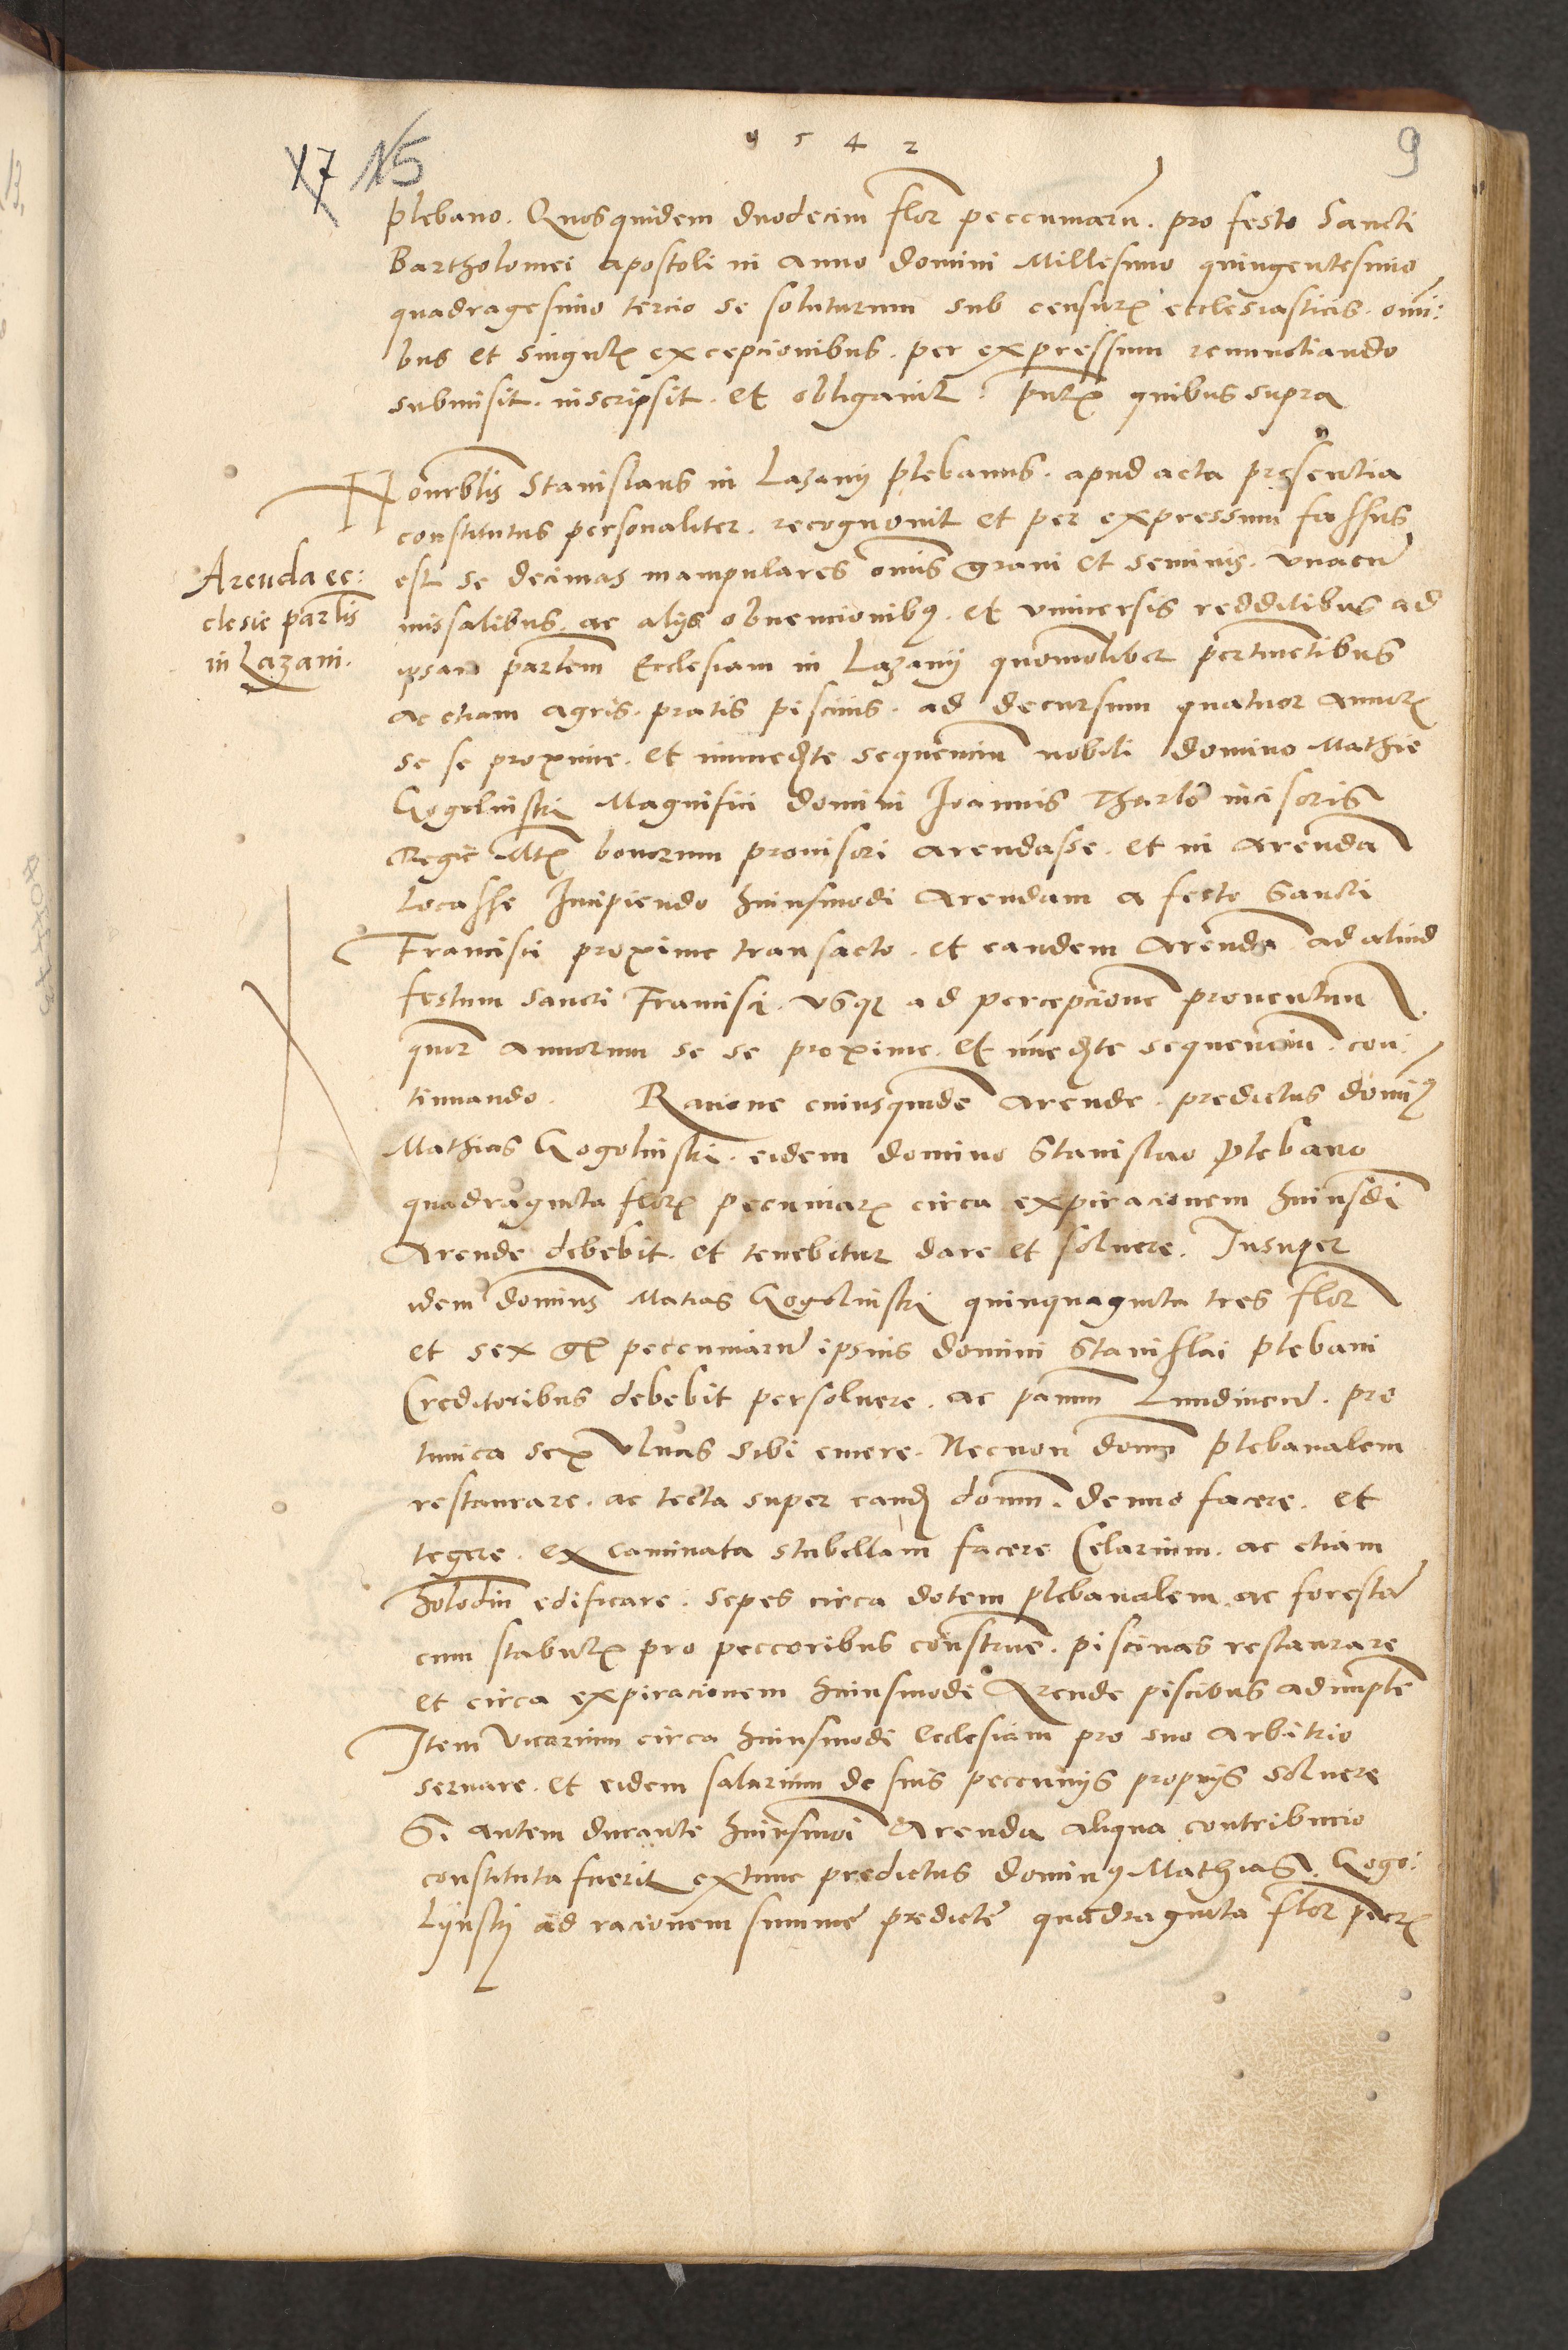 1 5 4 2
9
17 15
plebano. Quosquidem duodecim flor peccuniarū. pro festo Sancti
Bartholomei apostoli in Anno domini Millesimo quingentesimo
quadragesimo tercio se soluturum sub censurꝭ ecclesiasticis. omi:
bus et singulꝭ excepcionibus. per expressum renunctiando
submisit. inscripsit. et obligauit. pñtꝭ quibus supra
Honorblis Stanislaus in Lazany plebanus. apud acta presentia
constitutus personaliter. recognouit et per expressum fassus
Arenda ec:
clesie parlis
in Lazani.
est se decimas manipulares omis grani et seminis. vnacū
missalibus. ac alys obuencionibꝰ. et vniuersis redditibus ad
ipsam parlem Ecclesiam in Lazany quomolibet pertinētibus
ac etiam agris. pratis piscinis. ad decursum quatuor annorꝝ
se se proxime. et immedte sequēnciū nobili domino Mathie
Gogolinski Magnifici domini Joannis Tharlo incisoris
Regie Mtꝭ bonorum prouisori arendasse. et in arendā
locasse Incipiendo huiusmodi arendam a festo Sancti
Francisci proxime transacto. et eandem arendā. ad aliud
festum sancti Francisci. vsqꝫ ad percepcionē prouentuū
quor annorum se se proxime. et immedte sequenciū. con:
tinuando. Racione cuiusquidē arende. predictus domiꝰ
Mathias Gogolinski. eidem domino Stanislao plebano
quadraginta florꝭ pecuniarꝝ circa expiracionem huiusdi
arende debebit. et tenebitur dare et soluere. Insuper
idem dominus Matias Gogolinski quinquaginta tres flor
et sex gꝭ peccuniarū ipsius domini Stanislai plebani
Creditoribus debebit persoluere. ac panum Lundinen. pro
tunica sex vlnas sibi emere. Necnon domū plebanalem
restaurare. ac tecta super eandꝫ domū. denuo facere. et
tegere. ex caminata stubellam facere Celarium. ac etiam
holodin edificare. sepes circa dotem plebanalem. ac forestā
cum stabulꝭ pro peccoribus construē. piscinas restaurare
et circa expiracionem huiusmodi Arende piscibus adimplē
Item vicarium circa huiusmodi ecclesiam pro suo arbitrio
seruare. et eidem salarium de suis peccunys proprys soluere
Si autem durante huiusmoi Arenda aliqua contribucio
constituta fuerit extunc predictus dominꝰ Mathias. Gogo:
lynsky ad racionem summe predicte quadraginta flor peccꝭ